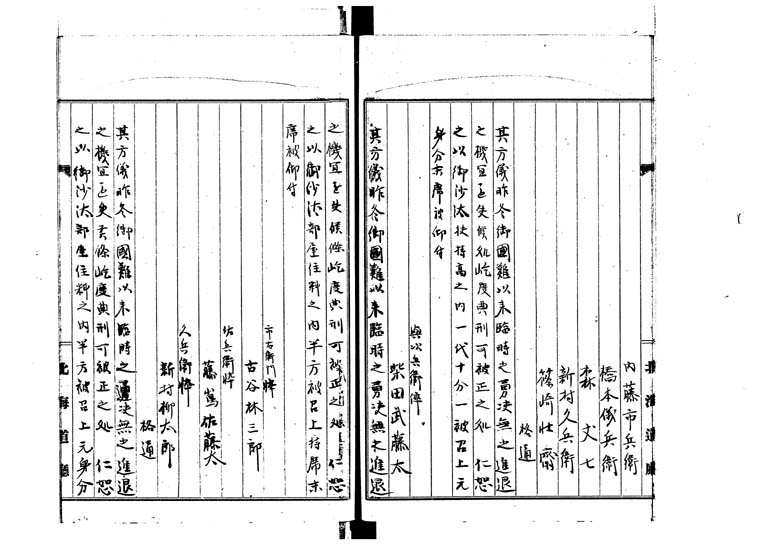 内藤市兵衛
橋本儀兵衛
森丈七
新村久兵衛
篠崎壮齋
格通
其方儀昨冬御國難以来臨時之勇決無之進退
之機宜を失候処屹度典刑可被正之処 仁恕
之以御沙汰扶持高之内一代十分一被召上元
身分末席被仰付
與次兵衛倅
柴田武藤太
其方儀昨冬御國難以来臨時之勇決無之進退
之機宜を失候條屹度典刑可被正之処 仁恕
之以御沙汰部屋住料之内半方被召上持席末
席被仰付
市右衛門倅
古谷林三郎
佐兵衛倅
藤嶌佐藤太
久兵衛倅
新村柳太郎
格通
其方儀昨冬御國難以来臨時之勇決無之進退
之機宜を失候條屹度典刑可被正之処 仁恕
之以御沙汰部屋住料之内半方被召上元身分
北海道廳
北海道廳